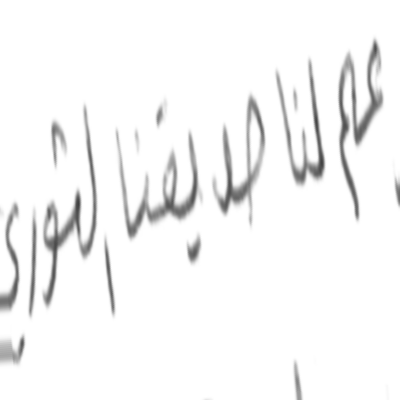 عم لنا صديقنا الثوري